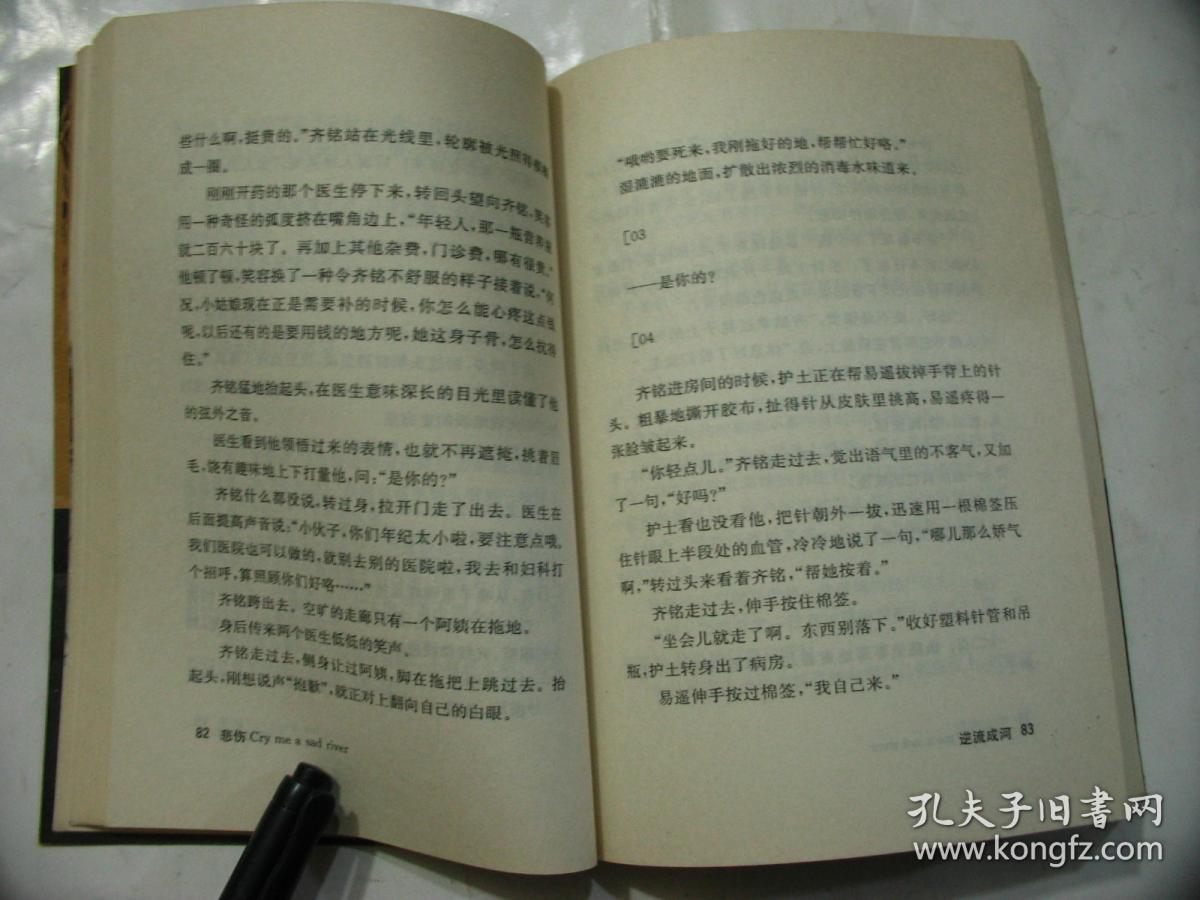 些什么啊，挺贵的。”齐铭站在光线里，轮廓被光照得
成一圈。
刚刚开药的那个医生停下来，转回头望向齐铭，笑容
用一种奇怪的弧度挤在嘴角边上，“年轻人，那一瓶营养液
就二百六十块了。再加上其他杂费，门诊费，哪有很贵。”
他顿了顿，笑容换了一种令齐铭不舒服的样子接着说，“何
况，小姑娘现在正是需要补的时候，你怎么能心疼这点钱
呢，以后还有的是要用钱的地方呢，她这身子骨，怎么扛得
住。”
齐铭猛地抬起头，在医生意味深长的目光里读懂了他
的弦外之音。
医生看到他领悟过来的表情，也就不再遮掩，挑着眉
毛，饶有趣味地上下打量他，问：“是你的？”
齐铭什么都没说，转过身，拉开门走了出去。医生在
后面提高声音说：“小伙子，你们年纪太小啦，要注意点哦。
我们医院也可以做的，就别去别的医院啦，我去和妇科打
个招呼，算照顾你们好咯……”
齐铭跨出去。空旷的走廊只有一个阿姨在拖地。
身后传来两个医生低低的笑声。
齐铭走过去，侧身让过阿姨，脚在拖把上跳过去。抬
起头，刚想说声“抱歉”，就正对上翻向自己的白眼。
82 悲伤 Cry me a sad river
“哦哟要死来，我刚拖好的地，帮帮忙好咯。”
湿漉漉的地面，扩散出浓烈的消毒水味道来。
[03
——是你的？
[04
齐铭进房间的时候，护士正在帮易遥拔掉手背上的针
头。粗暴地撕开胶布，扯得针从皮肤里挑高，易遥疼得一
张脸皱起来。
“你轻点儿。”齐铭走过去，觉出语气里的不客气，又加
了一句，“好吗？”
护士看也没看他，把针朝外一拔，迅速用一根棉签压
住针眼上半段处的血管，冷冷地说了一句，“哪儿那么娇气
啊，”转过头来看着齐铭，“帮她按着。”
齐铭走过去，伸手按住棉签。
“坐会儿就走了啊。东西别落下。”收好塑料针管和吊
瓶，护士转身出了病房。
易遥伸手按过棉签，“我自己来。”
逆流成河 83
孔夫子旧書网
www.kongfz.com